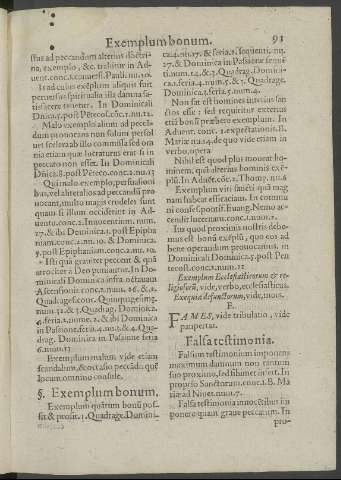 Exemplum bonum. 91
ssus ad peccandum alterius doctri-
na, exemplo, &c. trahitur in Ad-
uent. conc. 1. exauest. Pauli. nu. 10.
Is ad cuius exẽplum aliquis fuit
peruersus spiritualia illi damna sa-
tisfacere tenetur. In Dominicali
Dñica. 5. post Pẽteco. cõc. 1. nu. 12.
Malo exemplo alium ad peccã-
dum prouocans non solum persol
uet scelera ab illo commissa sed ora
nia etiam quæ locuturus erat si in
peccato non esset. In Dominicali
Dñica. 8. post Pẽteco. conc. nu. 13
Qui malo exemplo, persuasioni
bus, vel alterallos ad peccandũ pro
uocant, multo magis crudeles sunt
quam si illum occiderint in Ad-
uento. conc. 2. Innocentium. num.
27. & ibi Dominica 1. post Epipha
niam. conc. 2. nu. 19. & Dominica
5. post Epiphaniam. conc. nu. 10.
Isti qui grauiter peccent & quã
atrociter à Deo puniantur. In Do-
minicali Dominica infra octauam
Ascensionis conc. nu. 16. &. 2.
Quadragef. conc. Quinquagesimæ.
num. 32 & 3. Quadrag. Dominica.
4. feria. 1. nume. 2. & ibi Dominica
in Passione. feria. 4. nu. 1. & 4. Qua-
drag. Dominica in Passione feria
6. num. 13
Exemplum malum vide etiam
scandalum, & occasio peccãdi quẽ
locum omnino consule.
§. Exemplum bonum.
Exemplum quãtum bonũ pos-
sit & prosit. 1. Quadrage. Domini-
ca 4. nu. 17. & feria. 2. sequenti, nu.
27. & Dominica in Passione sequẽ
ti. num. 14. & 3. Quadrag. Domini-
ca. 1. feria. 4. num. 5. & 3. Quadrage.
Dominica. 1. feria. 5. num. 4.
Non sat est homines interius san
ctos esse: sed requiritur exterius
etiã bonũ præbere exemplum. In
Aduent. conc. 2. expectationis. B.
Mariæ nu. 14. de quo vide etiam in
verbo, opera
Nihil est quod plus moueat ho-
minem, quã alterius hominis exẽ-
plũ. In Aduẽ. cõc. 2. Thomę. nu. 6
Exemplum viri sancti quã mag
nam habeat efficaciam. In commu
ni confesspontif. Euang. Nemo ac-
cendit lucernam. conc. 1. num. 2.
Ius quod proximis nostris debe-
mus est bonũ exẽplũ, quo eos ad
bene operandum prouocamus. in
Dominicali. Dominica. 5. post Pen
tecost. conc. 2. num. 11
Exemplum Ecclesiasticorum & re-
ligiosorũ, vide, verbo, ecclesiasticus.
Exequiæ defunctorum, vide, mors.
F.
FAMES, vide tribulatio, vide
paupertas.
Falsa testimonia.
Falsum testimonium imponens
maximum damnum non tantum
suo proximo, sed sibimet infert. In
proprio Sanctorum. conc. 1. B. Ma
riæ ad Niues. num. 7.
Falsa testimonia innocẽtibus im
ponere quam graue peccatum. In
pro-